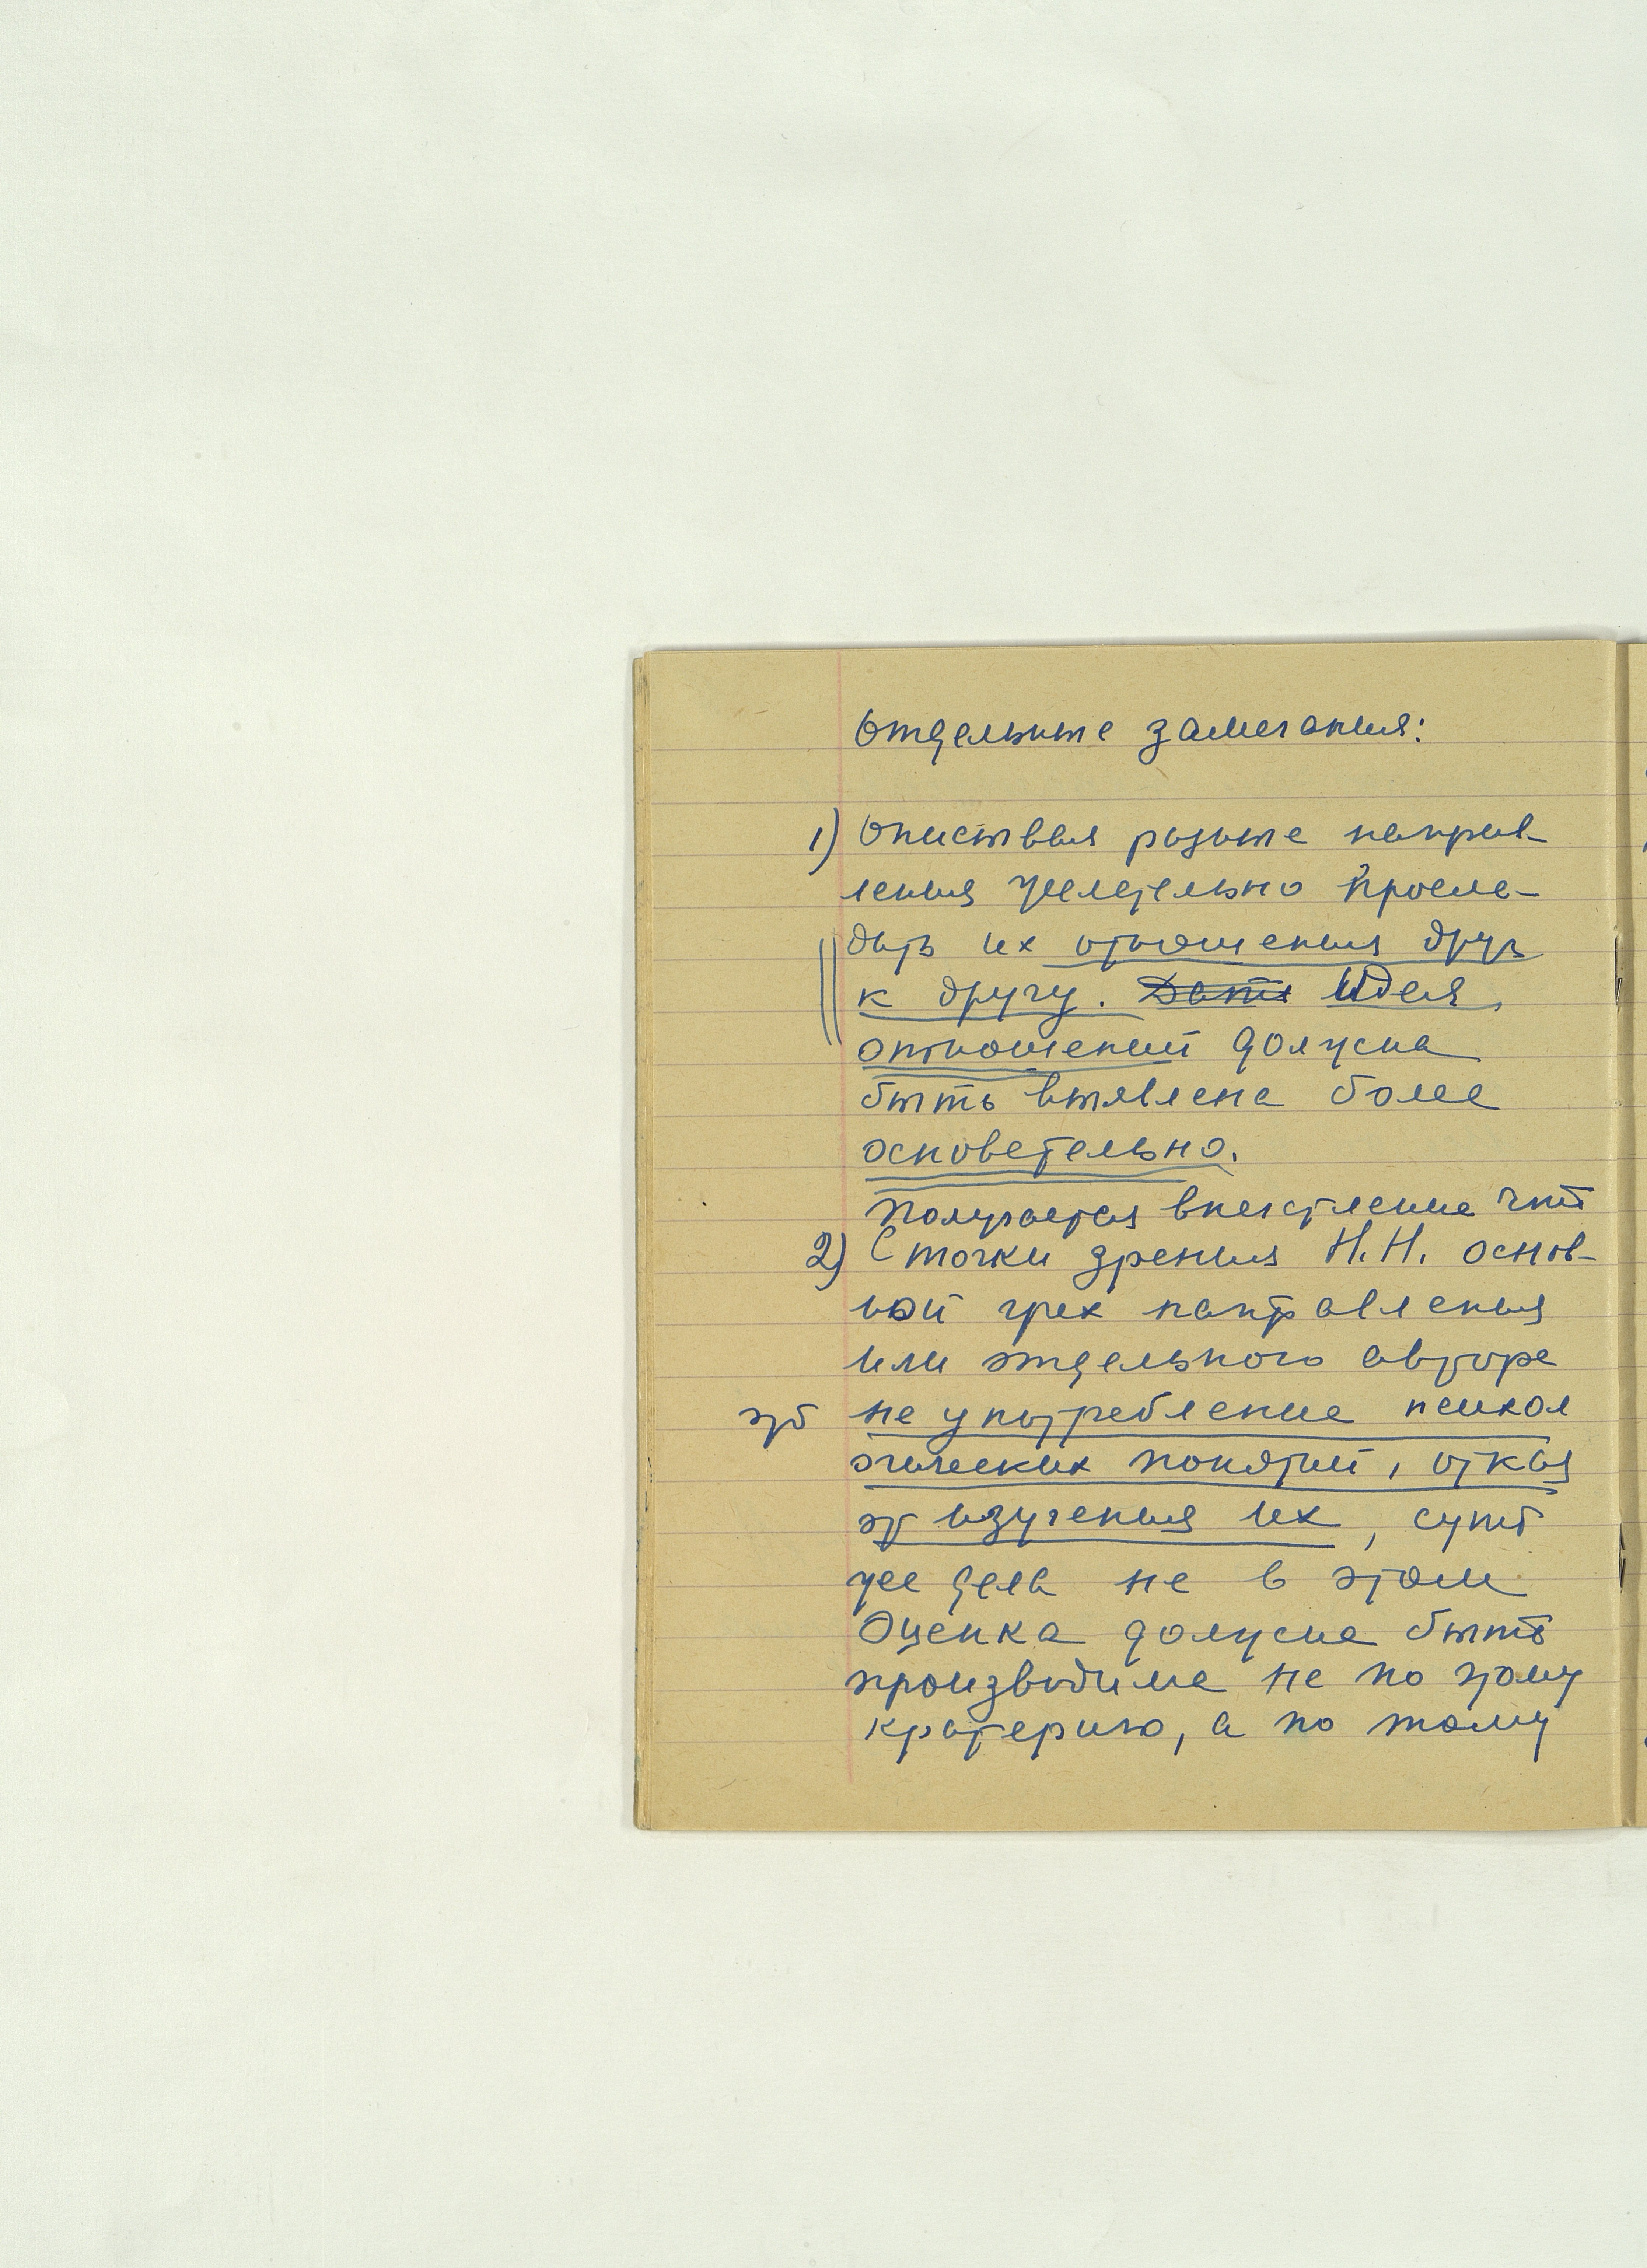 Отдельные замечания:
1) Описывая разные направ-
ления желательно просле-
дить их отношения друг
к другу. Дать Идея
отношений должна
быть выявлена более
основательно.
Получается впечатление что
2) С точки зрения Н.Н. основ-
ной грех направления
или отдельного автора
это не употребление психол
огических понятий, отказ
от изучения их, суть
же дела не в этом
Оценка должна быть
производима не по этому
критерию, а по тому